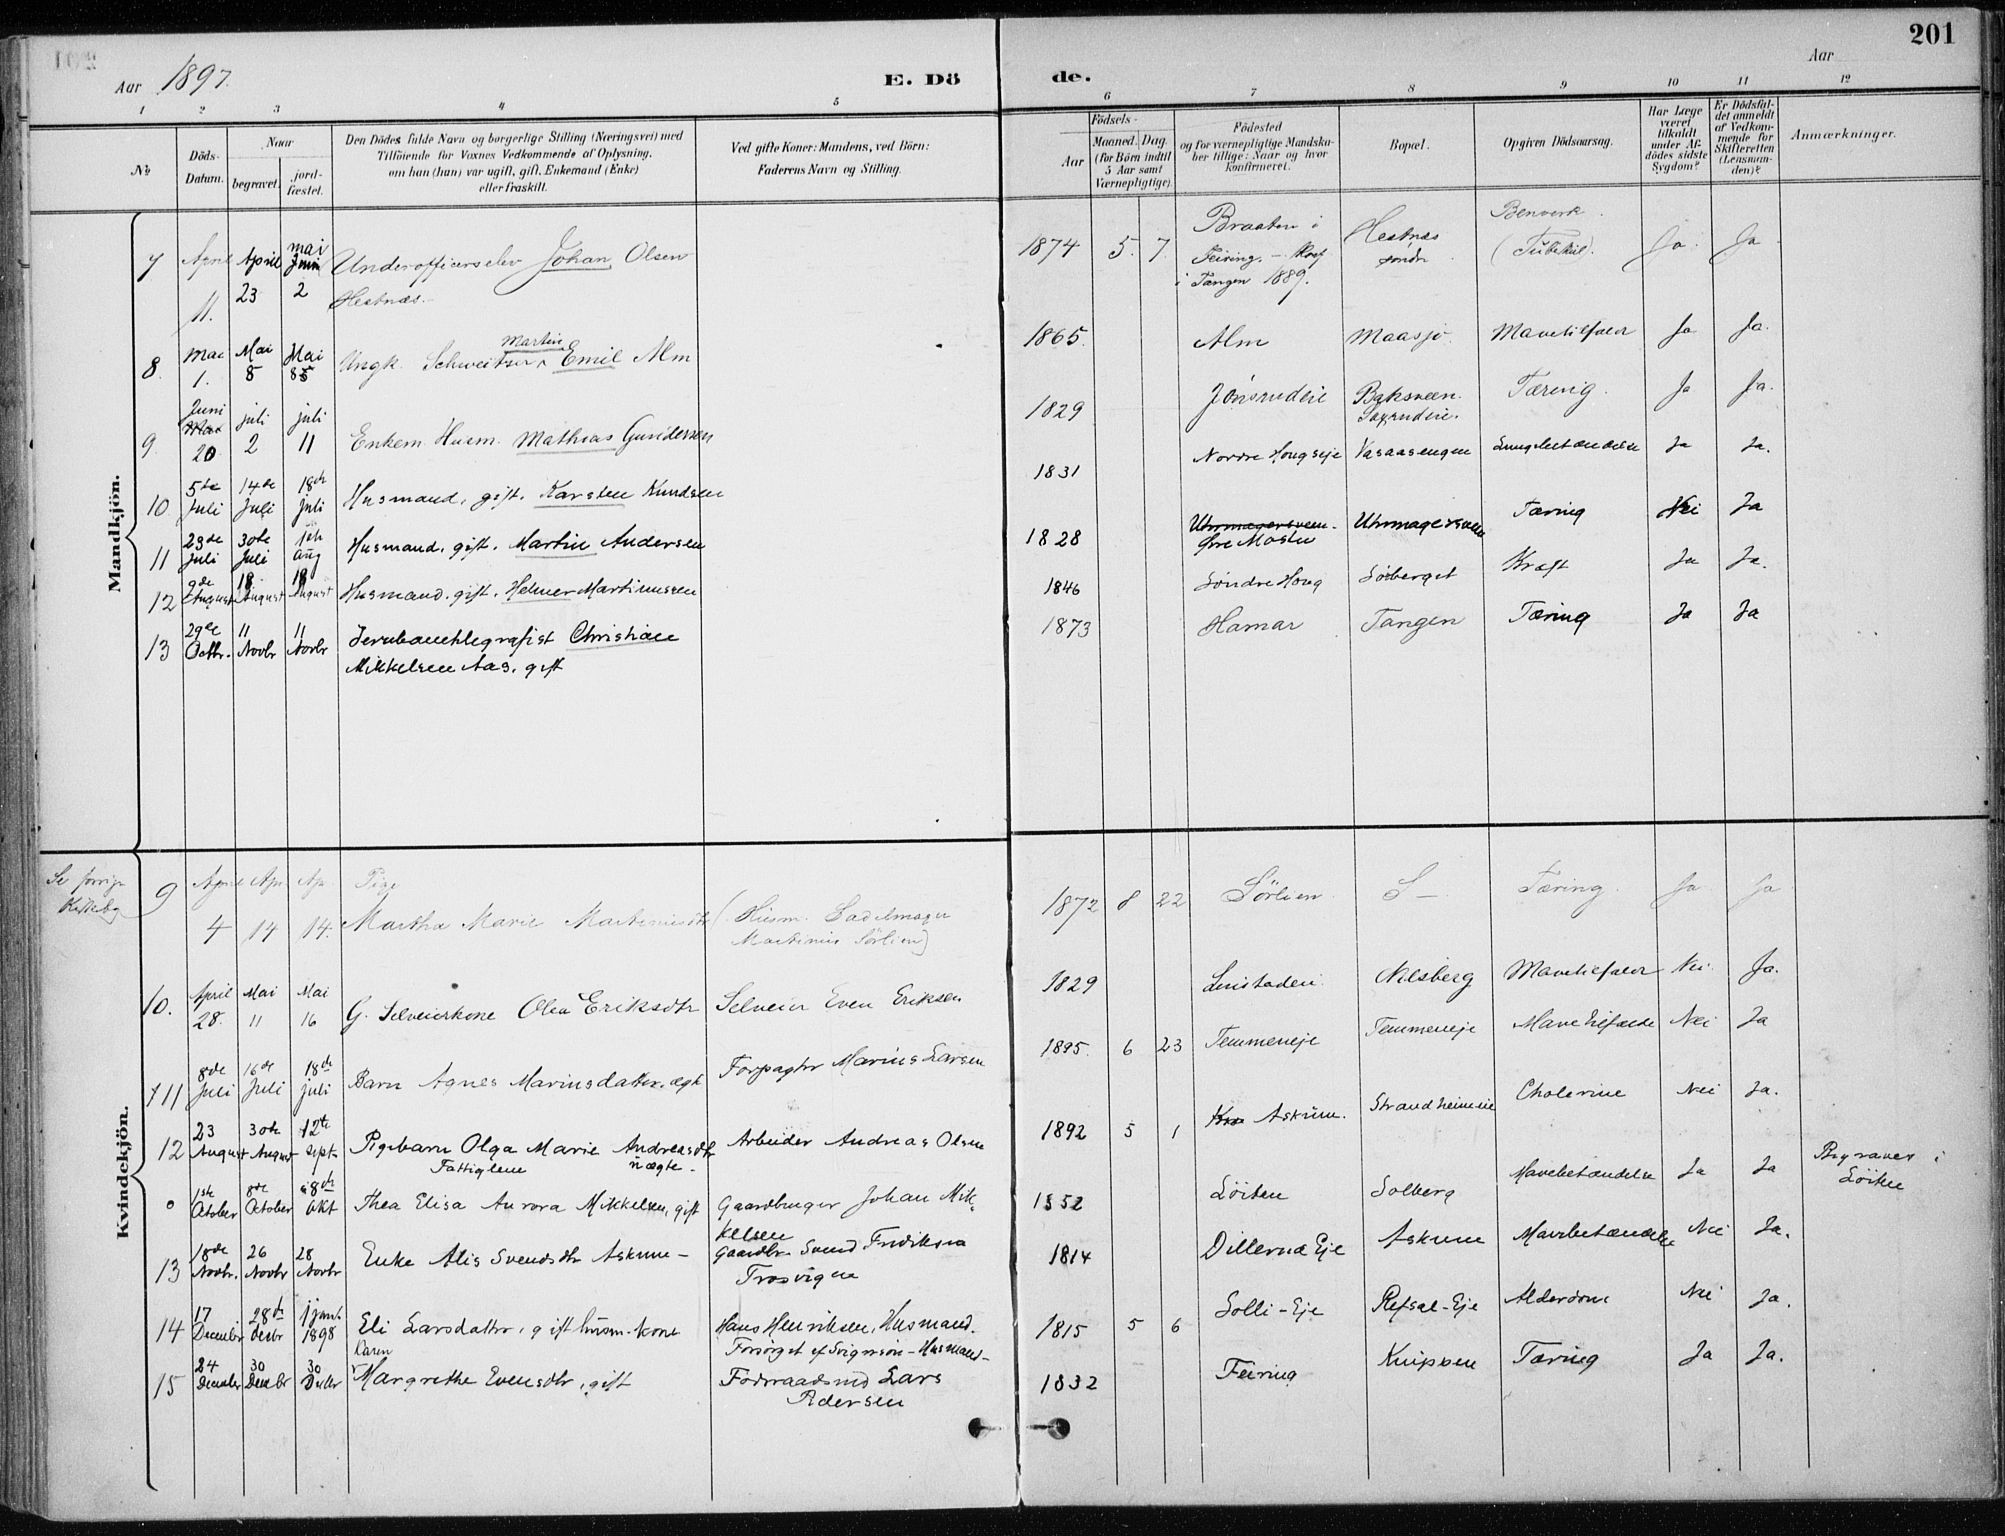 201
Aar 1897.
E. Dö
de.
Aar
1 2 3 4 5 6 7 8 9 10 11 12
No
Döds-Datum.
Naar
begravet.
jord-fæstet.
Den Dödes fulde Navn og borgerlige Stilling (Næringsvei) med
Tilföiende for Voxnes Vedkommende af Oplysning.
om han (hun) var ugift, gift, Enkemand (Enke)
eller fraskilt.
Ved gifte Koner: Mandens, ved Börn:
Faderens Navn og Stilling.
Födsels-
Aar
Maaned. Dag.
(for Börn indtil
5 Aar samt
Værnepligtige).
Födested
og for værnepligtige Mandska-
ber tillige: Naar og hvor
konfirmeret.
Bopæl.
Opgiven Dödsaarsag.
Har Læge
været
tilkaldt
under Af-
dödes sidste
Sygdom?
Er Dödsfal-
det anmeldt
af Vedkom-
mende for
Skifteretten
(Lensman-
den)?
Anmærkninger.
Mandkjön.
7 April 11. April 23 mai Juni 2 Underofficerselev Johan Olsen Hestnæs. 1874 5. 7. Braaten i Feiring. - Konf i Tangen 1889. Hestnæs søndr Benværk. (Tuberkul). Ja. Ja
8. Mai 1. Mai 8 Mai 8 Ungk. Schweitser Martin Emil Alm 1865. Alm Maasjø. Mavetilfælde Ja Ja.
9. Juni Mai 20 juli 2 juli 11 Enkem. Husm. Mathias Gundersen 1829 Jønsrudeie Baksveen. Saxrudeie. Tæring. Ja Ja.
10 5te Juli 14de Juli 18de juli Husmand, gift. Karsten Knudsen 1831 Nordre Hougseje Vasaasengen Lungebetændelse Ja Ja.
11 23de Juli 30te Juli 1ste aug Husmand. gift. Martin Andersen 1828 Uhrmagersveen. Øvre Mostu Uhrmagersveen Tæring Nei Ja
12 9de August 18 August 18 August Husmand. gift. Helmer Martinussen 1846 Søndre Houg Solberget Kræft Ja Ja.
13 29de Octbr. 11 Novbr 11 Novbr Jernbanetelegrafist Christian Mikkelsen Aas, gift 1873 Hamar Tangen Tæring Ja Ja
Kvindekjön.
Se forrige
9 April 4 Apr 14 Ap. 14. Pige Martha Marie Martinusdtr (Husm. Sadelmager Martinus Sörlien) 1872 8 22 Sörlien S— Tæring. Ja Ja
10. April 28. Mai 11 Mai 16 G. Selveierkone Olea Eriksdtr Selveier Even Eriksen 1829 Linstadeie Nilsberg Mavetilfælde Nei. Ja.
11 8de Juli 16de Juli 18de juli Barn Agnes Mariusdatter. ægte Forpagter Marius Larsen 1895. 6 23 Temmeneje Temmeneje Mavetilfælde Nei Ja
12 23 August 30te August 12te Sept. Pigebarn Olga Marie Andreasdtr Fattiglem uægte. Arbeider Andreas Olsen 1892 5 1 Askum. Strandheimeie Cholerine Nei Ja.
0 1ste October 8de October 8de Okt Thea Elisa Aurora Mikkelsen, gift Gaardbruger Johan Mikkelsen 1852 Löiten Solberg Mavebetændelse Ja Ja Begraves i Löiten
13 18de Novbr. 26 Novbr 28 Novbr Enke Alis Svendsdtr Askum - Gaardbr. Svend Fredriksen Trosvigen 1814 Dillerud Eje Askum Mavebetændelse Nei Ja.
14 17 December 28de Decbr 1 janr. 1898 Eli Larsdatter, gift husm. kone Hans Henriksen, Husmand. 1815 5 6 Solli-Eje Refsal-Eje Alderdom Nei Ja.
15 24 December 30 Decbr 30 Decbr Karen Margrethe Evensdtr, gift Föderaadsmd Lars Pedersen 1832 Feiring Knippen Tæring Ja Ja.